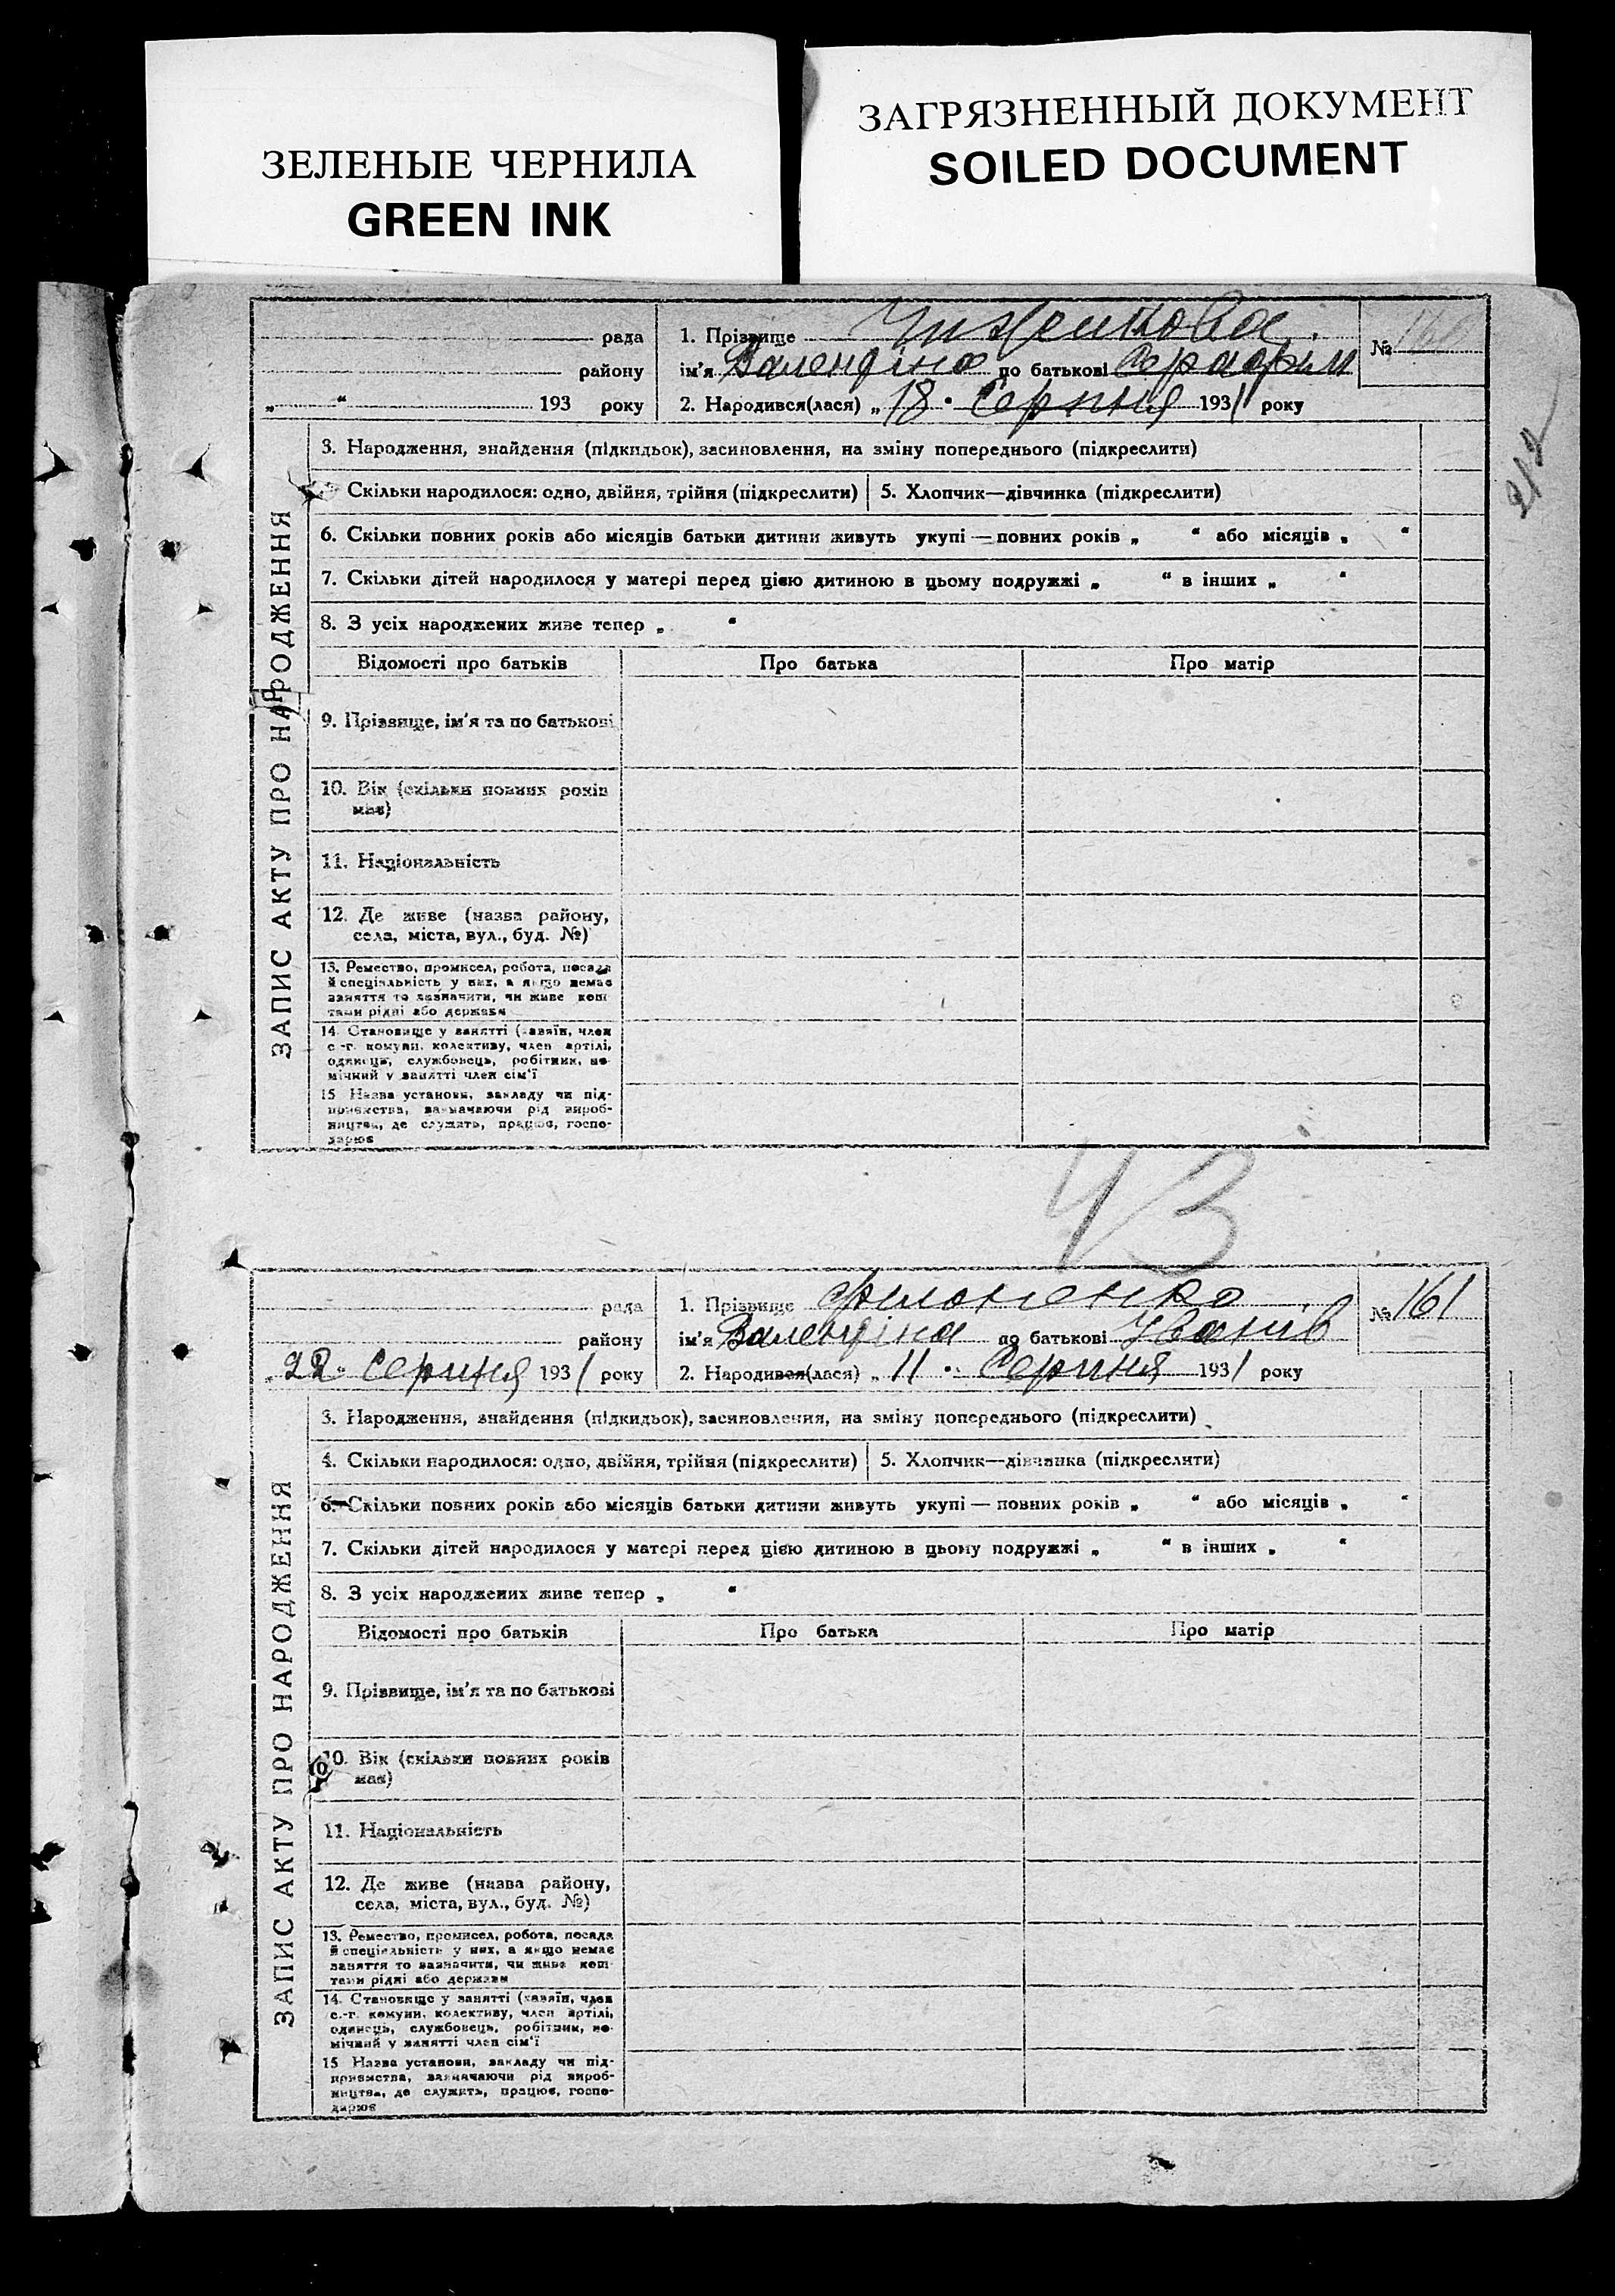 ЗЕЛЕНЫЕ ЧЕРНИЛА
GREEN INK
ЗАГРЯЗНЕННЫЙ ДОКУМЕНТ
SOILED DOCUMENT
рада
району
„ “ 193 року
1. Прізвище
ім'я Валентіна по батькові Серафим
2. Народився(лася) „18“ Серпня 1931 року
№ 160
212
ЗАПИС АКТУ ПРО НАРОДЖЕННЯ
3. Народження, знайдення (підкидьок), засиновлення, на зміну попереднього (підкреслити)
Скільки народилося: одно, двійня, трійня (підкреслити) 5. Хлопчик—дівчинка (підкреслити)
6. Скільки повних років або місяців батьки дитини живуть укупі — повних років „ “ або місяців „ “
7. Скільки дітей народилося у матері перед цією дитиною в цьому подружжі „ “ в інших „ “
8. З усіх народжених живе тепер „ “
Відомості про батьків Про батька Про матір
9. Прізвище, ім'я та по батькові
10. Вік (скільки повних років
має)
11. Національність
12. Де живе (назва району,
села, міста, вул., буд. №)
13. Ремество, промисел, робота, посада
й спеціяльність у них, а якщо немає
заняття то зазначити, чи живе кош-
тами рідні або держави
14. Становище у занятті (хазяїн, член
с.-г. комуни, колективу, член артілі,
одинець, службовець, робітник, по-
мічний у занятті член сім'ї
15 Назва установи, закладу чи під-
приємства, зазначаючи рід вироб-
ництва, де служить, працює, госпо-
дарює
43
рада
району
„22“ Серпня 1931 року
1. Прізвище Филоненко
ім'я Валентіна по батькові Іванів
2. Народився(лася) „11“ Серпня 1931 року
№ 161
ЗАПИС АКТУ ПРО НАРОДЖЕННЯ
3. Народження, знайдення (підкидьок), засиновлення, на зміну попереднього (підкреслити)
4. Скільки народилося: одно, двійня, трійня (підкреслити) 5. Хлопчик—дівчинка (підкреслити)
6. Скільки повних років або місяців батьки дитини живуть укупі — повних років „ “ або місяців „ “
7. Скільки дітей народилося у матері перед цією дитиною в цьому подружжі „ “ в інших „ “
8. З усіх народжених живе тепер „ “
Відомості про батьків Про батька Про матір
9. Прізвище, ім'я та по батькові
10. Вік (скільки повних років
має)
11. Національність
12. Де живе (назва району,
села, міста, вул., буд. №)
13. Ремество, промисел, робота, посада
й спеціяльність у них, а якщо немає
заняття то зазначити, чи живе кош-
тами рідні або держави
14. Становище у занятті (хазяїн, член
с.-г. комуни, колективу, член артілі,
одинець, службовець, робітник, по-
мічний у занятті член сім'ї
15 Назва установи, закладу чи під-
приємства, зазначаючи рід вироб-
ництва, де служить, працює, госпо-
дарює